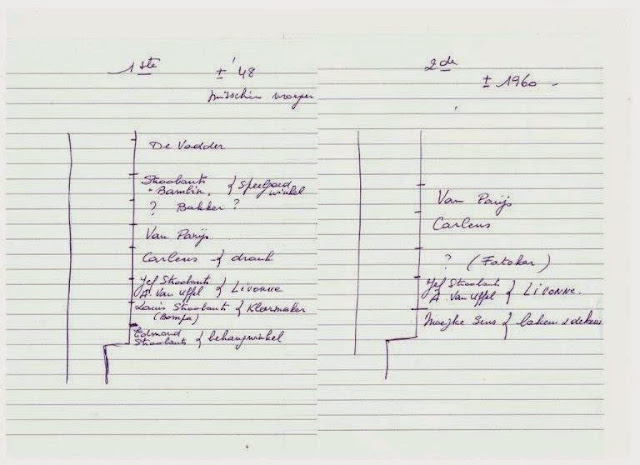 1ste
± '48
misschien vroeger
De Vodder
Stroobants { Speelgoed
"Bambin" winkel
? Bakker ?
Van Parijs
Carleus { drank
Jef Stroobants { Livonne
A. Van Uffel
Louis Stroobants { Kleermaker
(Bompa)
Edmond
Stroobants { behangwinkel
2de
± 1960
Van Parijs
Carleus
? (Fotokar)
Jef Stroobants { Livonne.
A. Van Uffel
Meijke Sens { lakens & dekens